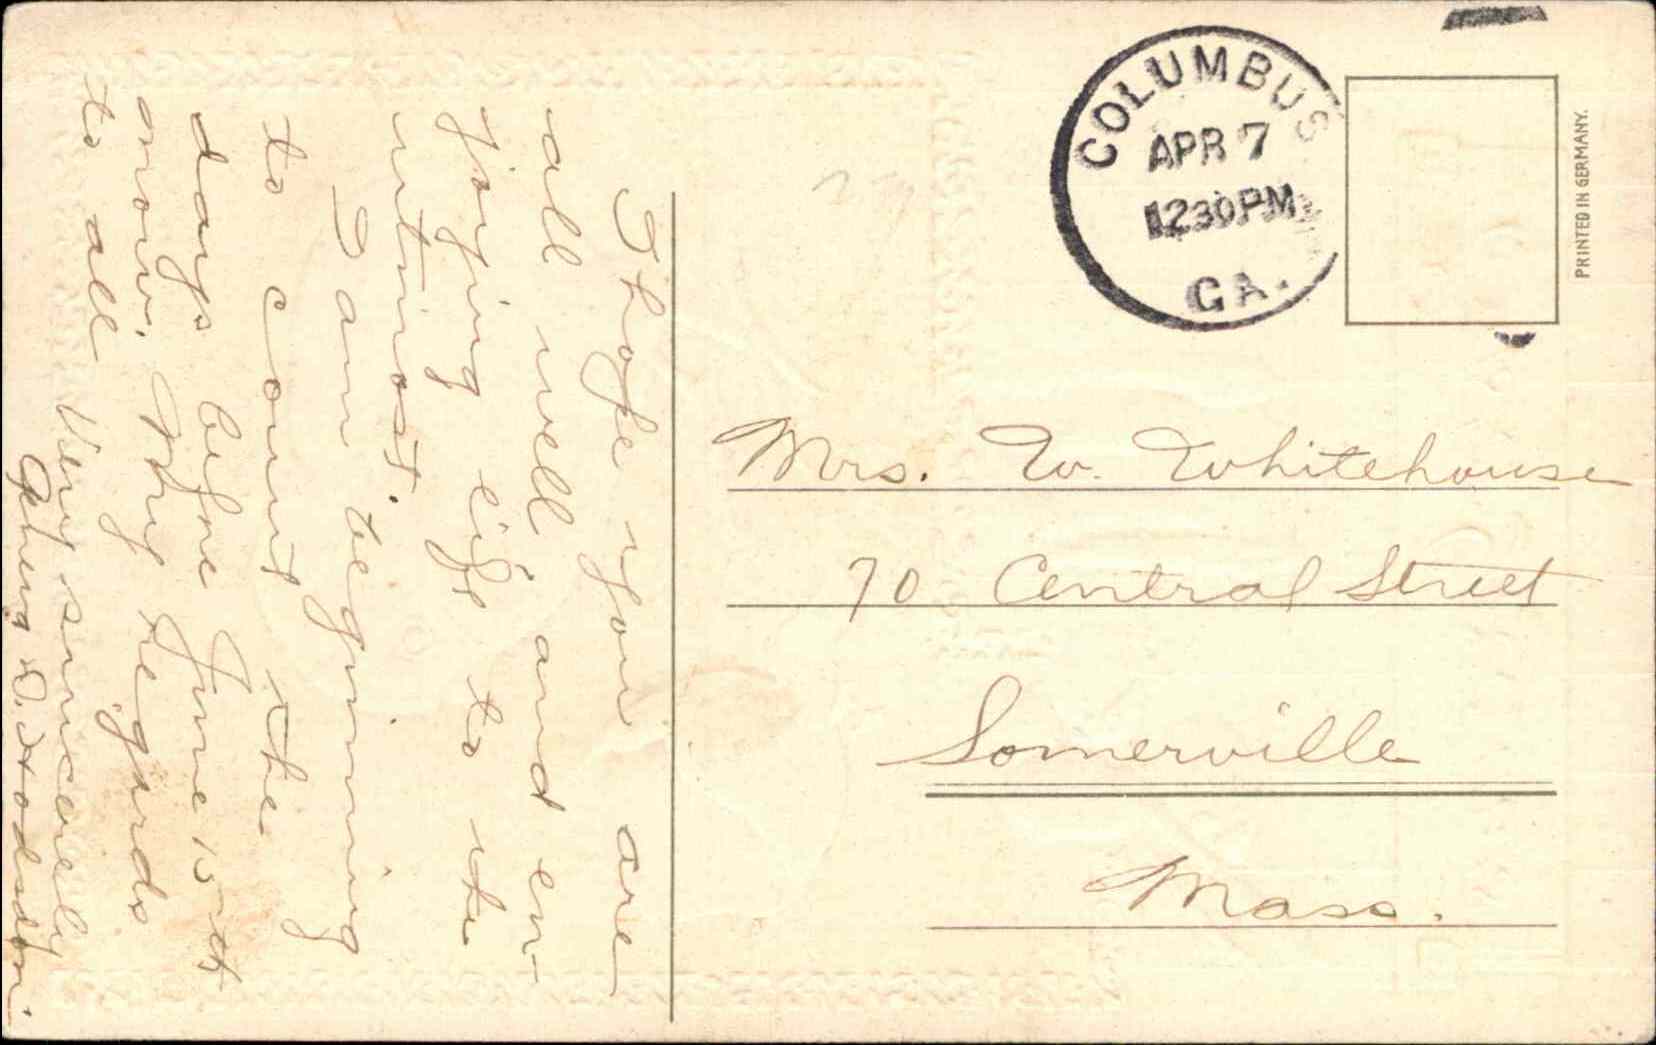 I hope you are
all well and en-
joying life to the
utmost.
I am begining
to count the
days before June 15th
now. My regards
to all
Very sincerely
D. Hodsdon.
COLUMBUS
APR 7
1230PM
GA.
PRINTED IN GERMANY.
Mrs. W. Whitehouse
70 Central Street
Somerville
Mass.